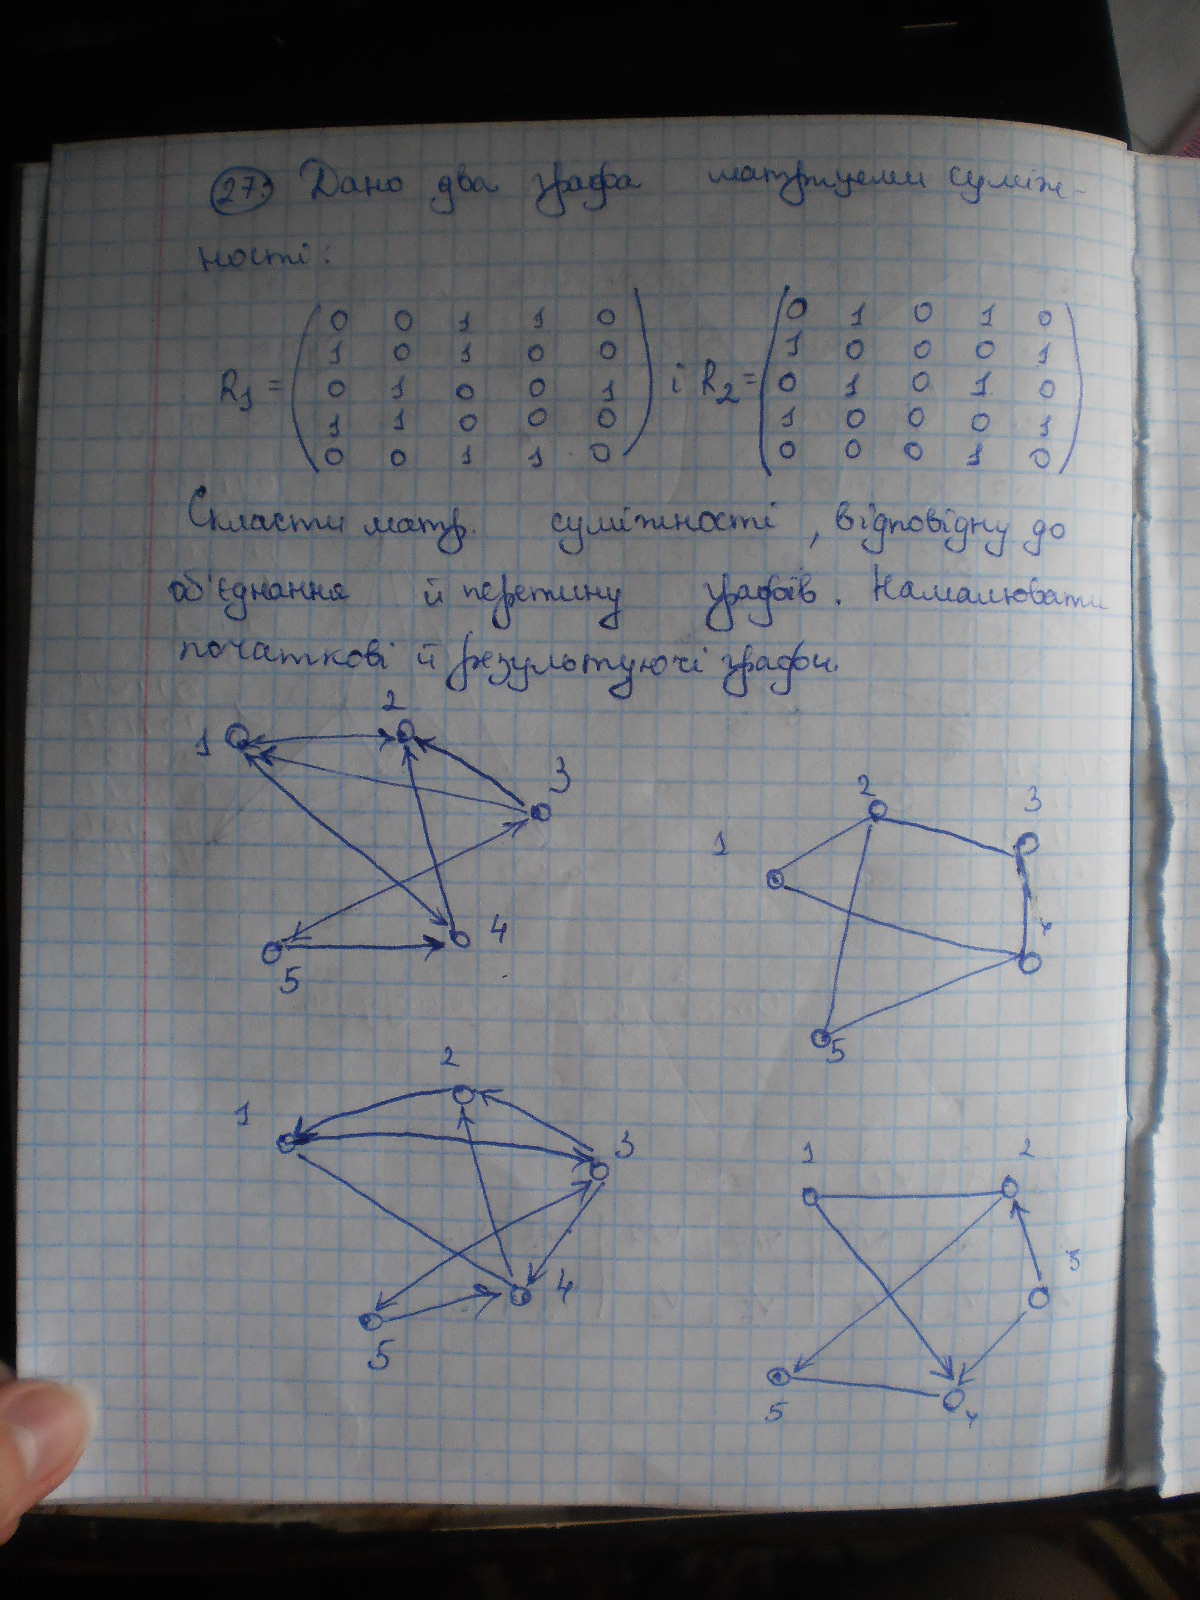 27. Дано два графа матрицеми суміж-
ності:
R1 = ( 0 0 1 1 0 ) і R2 = ( 0 1 0 1 0 )
1 0 1 0 0 1 0 0 0 1
0 1 0 0 1 0 1 0 1 0
1 1 0 0 0 1 0 0 0 1
0 0 1 1 0 0 0 0 1 0
Скласти матр. суміжності, відповідну до
об'єднання й перетину графів. Намалювати
початкові й результуючі графи.
1 2 3 4 5
1 2 3 4 5
1 2 3 4 5
1 2 3 4 5